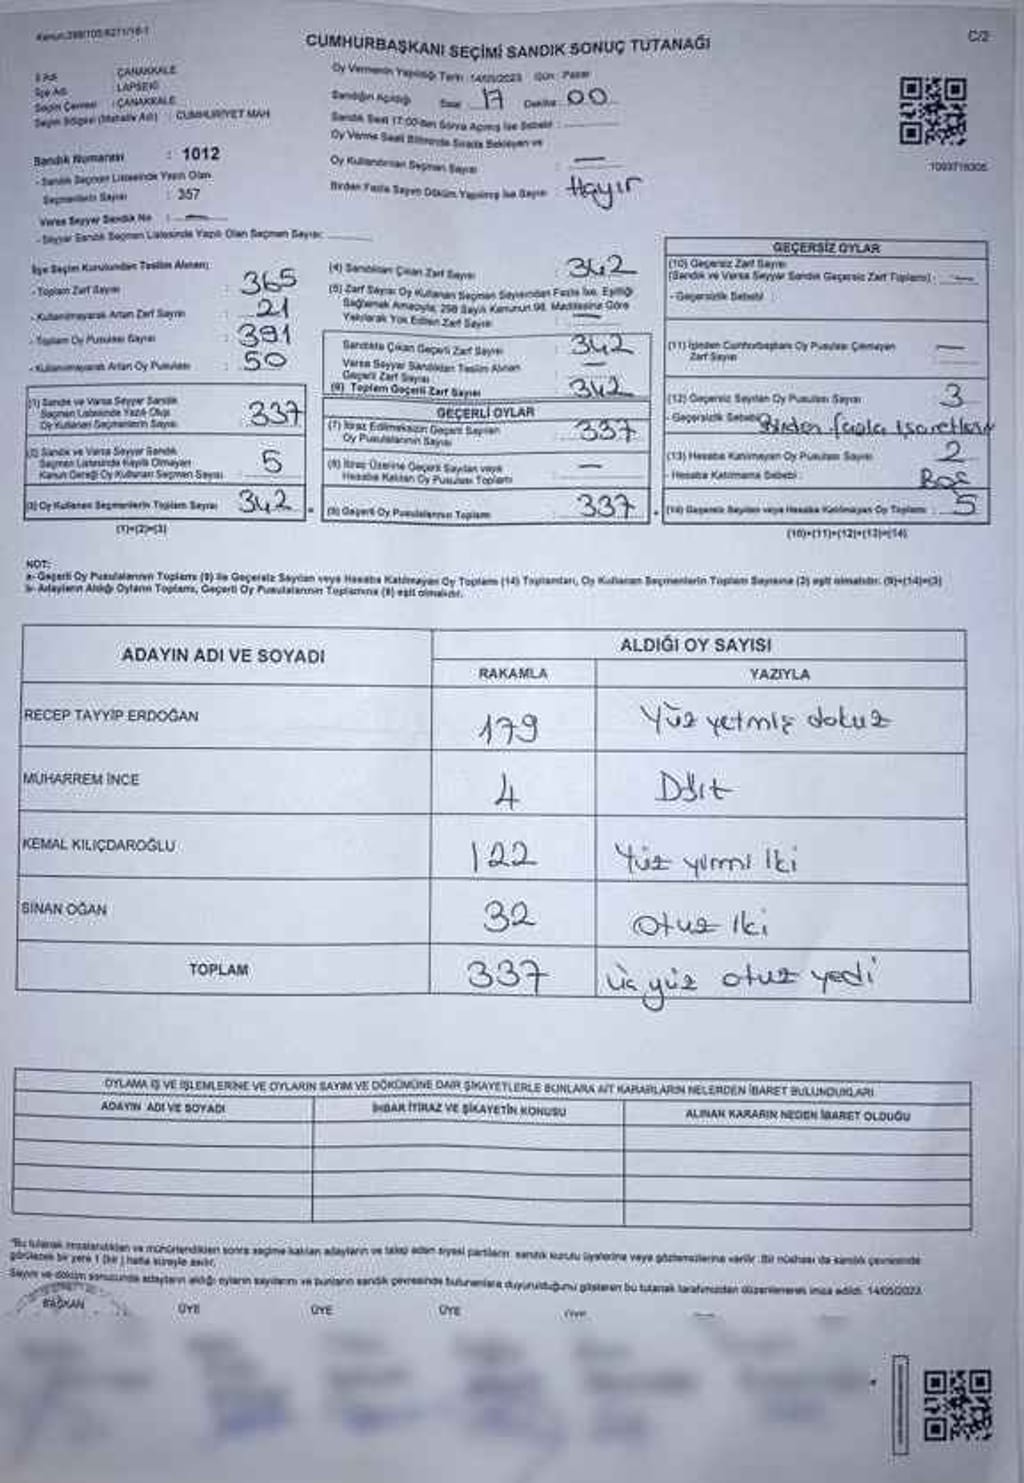 Kanun:298/105/6271/18-1
CUMHURBAŞKANI SEÇİMİ SANDIK SONUÇ TUTANAĞI
C/2
İl Adı : ÇANAKKALE
İlçe Adı : LAPSEKİ
Seçim Çevresi : ÇANAKKALE
Seçim Bölgesi (Mahalle Adı) : CUMHURİYET MAH
Sandık Numarası : 1012
- Sandık Seçmen Listesinde Yazılı Olan
Seçmenlerin Sayısı : 357
Varsa Seyyar Sandık No : —
- Seyyar Sandık Seçmen Listesinde Yazılı Olan Seçmen Sayısı:
Oy Vermenin Yapıldığı Tarih : 14/05/2023 Gün : Pazar
Sandığın Açıldığı Saat 17 Dakika 00
Sandık Saat 17:00'den Sonra Açılmış İse Sebebi :
Oy Verme Saati Bitiminde Sırada Bekleyen ve
Oy Kullandırılan Seçmen Sayısı : —
Birden Fazla Sayım Döküm Yapılmış İse Sayısı : Hayır
1093716305
İlçe Seçim Kurulundan Teslim Alınan;
- Toplam Zarf Sayısı : 365
- Kullanılmayarak Artan Zarf Sayısı : 21
- Toplam Oy Pusulası Sayısı : 391
- Kullanılmayarak Artan Oy Pusulası : 50
(1) Sandık ve Varsa Seyyar Sandık
Seçmen Listesinde Yazılı Olup
Oy Kullanan Seçmenlerin Sayısı : 337
(2) Sandık ve Varsa Seyyar Sandık
Seçmen Listesinde Kayıtlı Olmayan
Kanun Gereği Oy Kullanan Seçmen Sayısı : 5
(3) Oy Kullanan Seçmenlerin Toplam Sayısı : 342
(1)+(2)=(3)
(4) Sandıktan Çıkan Zarf Sayısı : 342
(5) Zarf Sayısı Oy Kullanan Seçmen Sayısından Fazla İse, Eşitliği
Sağlamak Amacıyla, 298 Sayılı Kanunun 98. Maddesine Göre
Yakılarak Yok Edilen Zarf Sayısı : —
Sandıkta Çıkan Geçerli Zarf Sayısı : 342
Varsa Seyyar Sandıktan Teslim Alınan
Geçerli Zarf Sayısı :
(6) Toplam Geçerli Zarf Sayısı 342
GEÇERLİ OYLAR
(7) İtiraz Edilmeksizin Geçerli Sayılan
Oy Pusulalarının Sayısı : 337
(8) İtiraz Üzerine Geçerli Sayılan veya
Hesaba Katılan Oy Pusulası Toplamı : —
(9) Geçerli Oy Pusulalarının Toplamı : 337
GEÇERSİZ OYLAR
(10) Geçersiz Zarf Sayısı
(Sandık ve Varsa Seyyar Sandık Geçersiz Zarf Toplamı) : —
- Geçersizlik Sebebi :
(11) İçinden Cumhurbaşkanı Oy Pusulası Çıkmayan
Zarf Sayısı —
(12) Geçersiz Sayılan Oy Pusulası Sayısı 3
- Geçersizlik Sebebi: Birden fazla işaretleme
(13) Hesaba Katılmayan Oy Pusulası Sayısı 2
- Hesaba Katılmama Sebebi : Boş
(14) Geçersiz Sayılan veya Hesaba Katılmayan Oy Toplamı : 5
(10)+(11)+(12)+(13)=(14)
NOT:
a- Geçerli Oy Pusulalarının Toplamı (9) ile Geçersiz Sayılan veya Hesaba Katılmayan Oy Toplamı (14) Toplamları, Oy Kullanan Seçmenlerin Toplam Sayısına (3) eşit olmalıdır. (9)+(14)=(3)
b- Adayların Aldığı Oyların Toplamı, Geçerli Oy Pusulalarının Toplamına (9) eşit olmalıdır.
ADAYIN ADI VE SOYADI ALDIĞI OY SAYISI
RAKAMLA YAZIYLA
RECEP TAYYİP ERDOĞAN 179 Yüz yetmiş dokuz
MUHARREM İNCE 4 Dört
KEMAL KILIÇDAROĞLU 122 Yüz yirmi iki
SİNAN OĞAN 32 Otuz iki
TOPLAM 337 üç yüz otuz yedi
OYLAMA İŞ VE İŞLEMLERİNE VE OYLARIN SAYIM VE DÖKÜMÜNE DAİR ŞİKAYETLERLE BUNLARA AİT KARARLARIN NELERDEN İBARET BULUNDUKLARI
ADAYIN ADI VE SOYADI İHBAR İTİRAZ VE ŞİKAYETİN KONUSU ALINAN KARARIN NEDEN İBARET OLDUĞU
*Bu tutanak imzalandıktan ve mühürlendikten sonra seçime katılan adayların ve talep eden siyasi partilerin sandık kurulu üyelerine veya gözlemcilerine verilir. Bir nüshası da sandık çevresinde
görülecek bir yere 1 (bir) hafta süreyle asılır.
Sayım ve döküm sonucunda adayların aldığı oyların sayılarını ve bunların sandık çevresinde bulunanlara duyurulduğunu gösteren bu tutanak tarafımızdan düzenlenerek imza edildi. 14/05/2023
BAŞKAN ÜYE ÜYE ÜYE